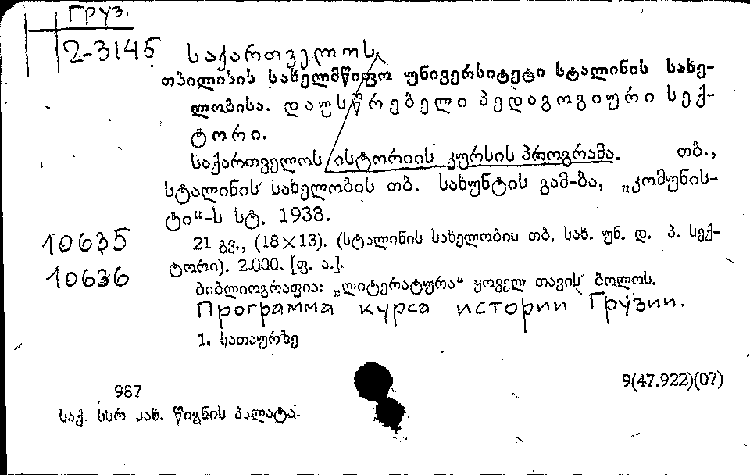 ГРУЗ.
2-3145 საქართველოს
თბილისის სახელმწიფო უნივერსიტეტი სტალინის სახე-
ლობისა. დაუსწრებელი პედაგოგიური სექ-
ტორი.
საქართველოს ისტორიის კურსის პროგრამა. თბ.,
სტალინის სახელობის თბ. სახუნტის გამ-ბა, „კომუნის-
ტი“-ს სტ. 1938.
10635 21 გვ., (18×13). (სტალინის სახელობის თბ. სახ. უნ. დ. პ. სექ-
10636 ტორი). 2.000. [ფ. ა.].
ბიბლიოგრაფია: „ლიტერატურა“ ყოველ თავის ბოლოს.
Программа курса истории Грузии.
1. სათაურზე
987 9(47.922)(07)
საქ. სსრ სახ. წიგნის პალატა